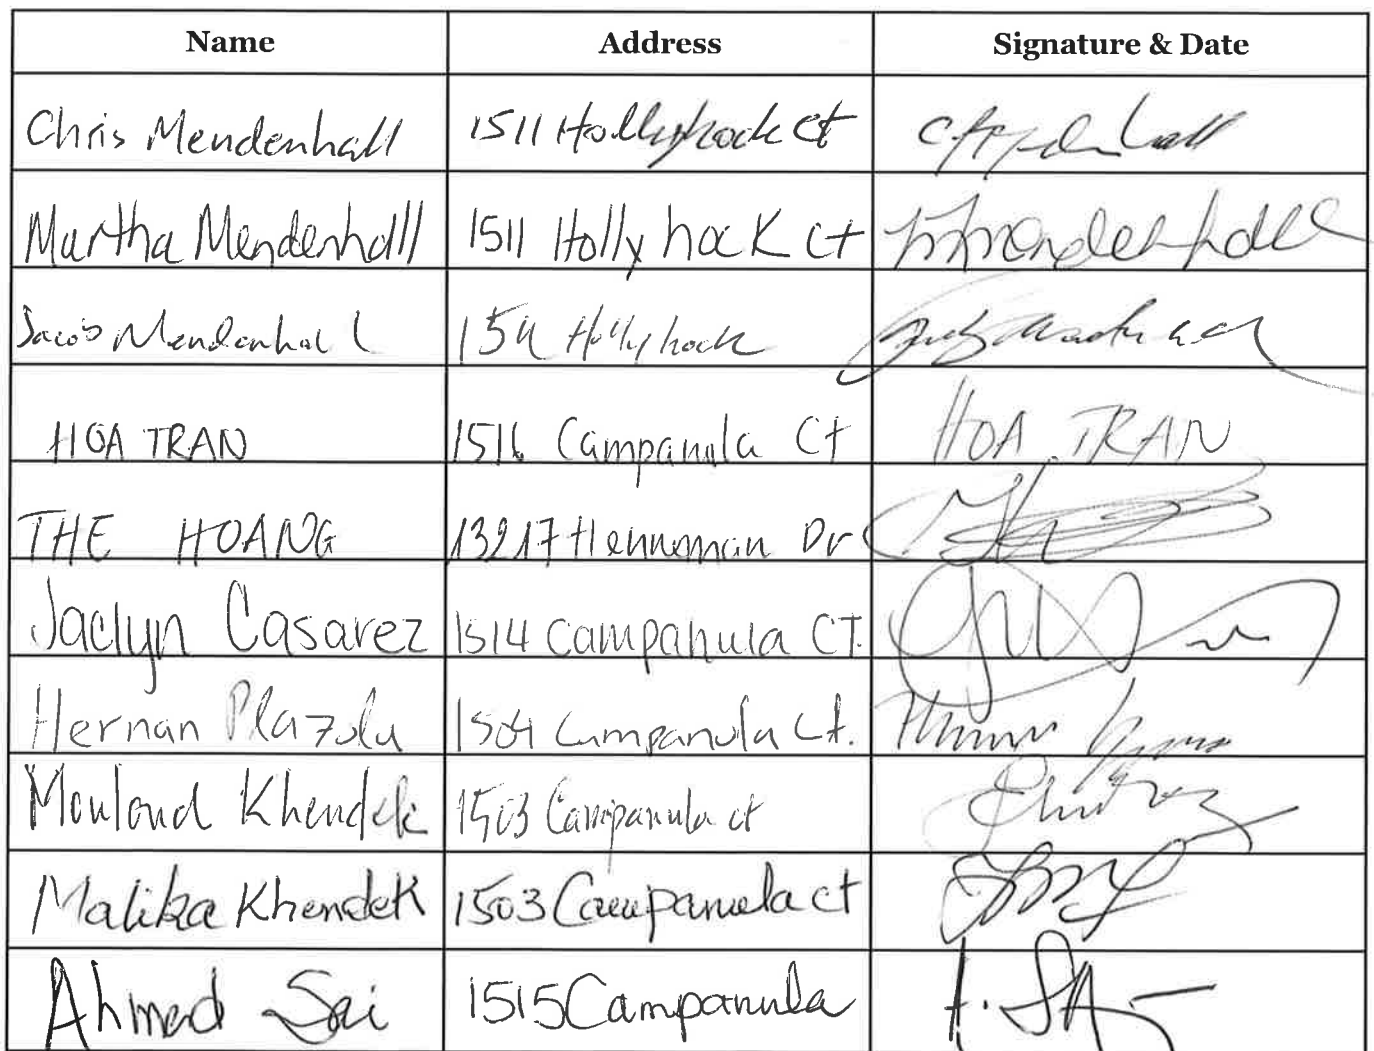 Name Address Signature & Date
Chris Mendenhall 1511 Hollyhock Ct
Martha Mendenhall 1511 Hollyhock Ct MMendenhall
Jacob Mendenhall 1511 Hollyhock
HOA TRAN 1516 Campanula Ct HOA TRAN
THE HOANG 13217 Henneman Dr
Jaclyn Casarez 1514 Campanula CT.
Hernan Plazola 1504 Campanula Ct.
Mouloud Khendek 1503 Campanula ct
Malika Khendek 1503 Campanula ct
Ahmed Sai 1515 Campanula